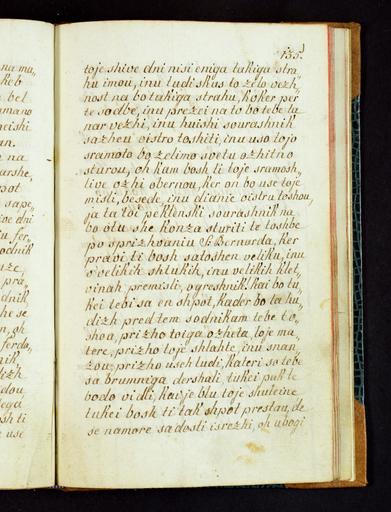 na mu,,
keb
bel
mano
neishi
an.
na
arshe,
pot
sape,
ive dni
u fer,,
odnik
uze
pra,,
dnik
he se
n, oh
ferdo,
nik
dizh
dou
sega
osh ti
use
135.
toje shive dni nisi eniga takiga stra
hu imou, inu tudi skus to zelo vezh,,
nost na bo takiga strahu, koker per
te sodbe, inu prezei na to bo tebe tu
nar vezhi, inu huishi sourashnik
sazheu oistro toshiti, inu uso tojo
sramoto bo zelimo svetu ozhitno
sturou, oh kam bosh ti toje sramosh,,
live ozhi obernou, ker on bo use toje
misli, besede, inu dianie oistru toshou,
ja ta toi peklenski sourashnik na
bo otu she konza sturiti te toshbe
po sprizhvaniu S: Bernarda, ker
pravi ti bosh satoshen veliku, inu
o velikeh shtukih, inu velikih klet,,
vinah premisli, o greshnik! kai bo tu,
kei tebi sa en shpot, kader bo ta hu,,
dizh pred tem sodnikam tebe to,,
shoa, prizho toiga ozheta, toje ma,,
tere, prizho toje shlahte, inu snan
zou, prizho useh ludi, kateri so tebe
sa brumniga dershali, tukei pak te
bodo vidli, kai je blu toje shuleine
tukei bosh ti tak shpot prestau, de
se namore sadosti isrezhi, oh ubogi